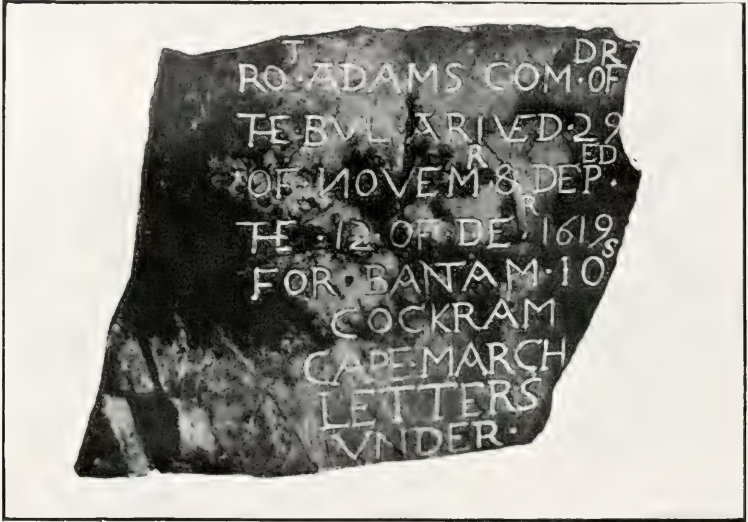 ROᵀ·ADAMS COMᴰᴿ·OF
THE·BVL ARIVED·29
OF·NOVEMᴿ & DEPᴱᴰ·
THE·12 OF·DEᴿ·1619
FOR·BANTAM·10ˢ
COCKRAM
CAPE·MARCH
LETTERS
VNDER·